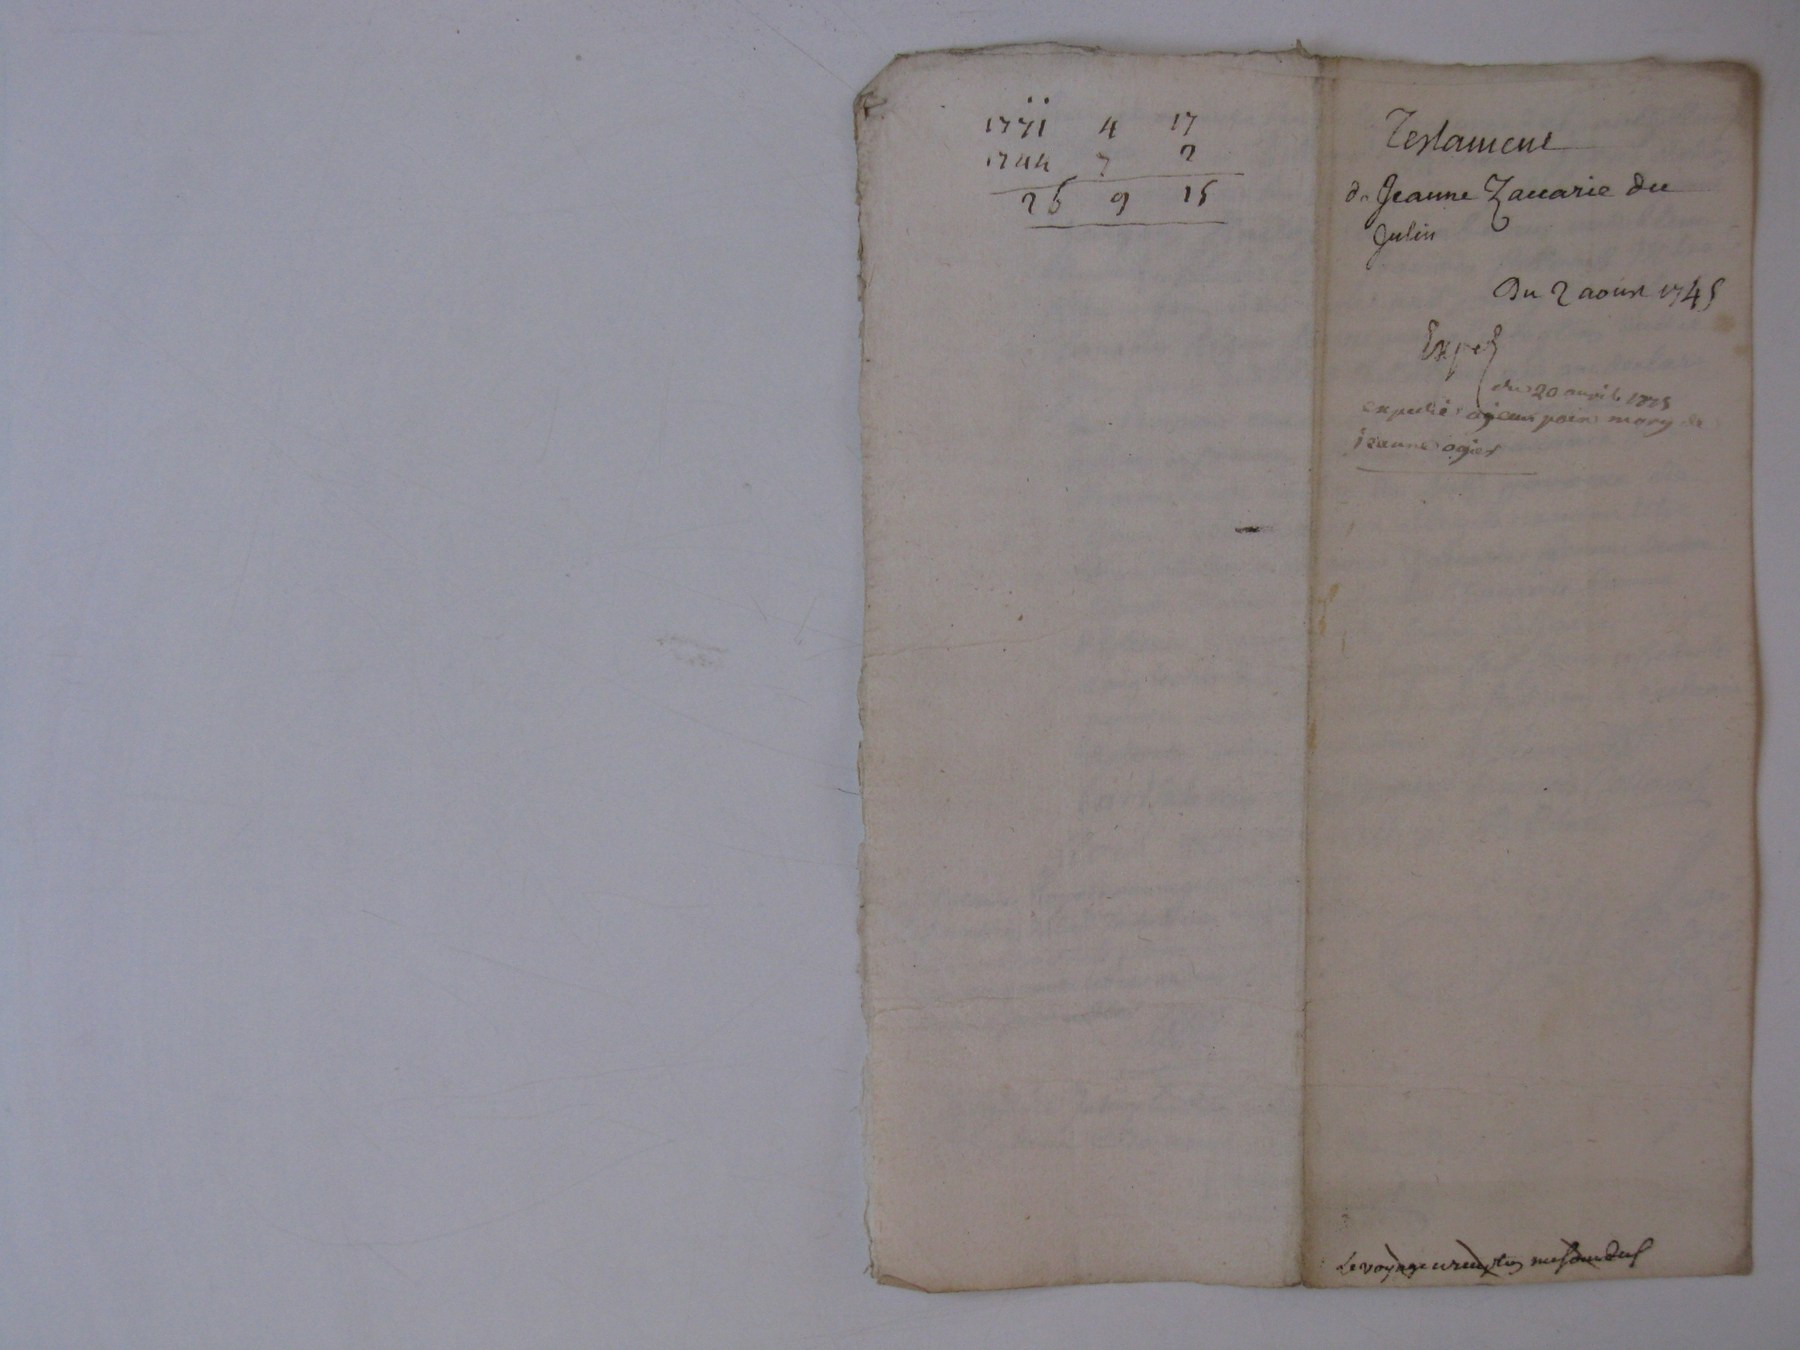 1771 4 17
1744 7 2
26 9 15
Testament
de Jeanne Zacarie du
Gelin
Du 2 aoust 1745
Exped
du 20 avril 1775
expedié a jean poin mary de
jeanne ogier
Le voyage et reception